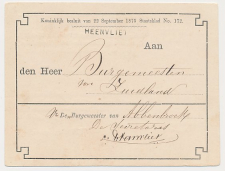 Koninklijk besluit van 22 September 1876 Staatsblad No. 172.
HEENVLIET
Aan
den Heer Burgemeester
van Zuidland
De Burgemeester van Abbenbroek
De Secretaris